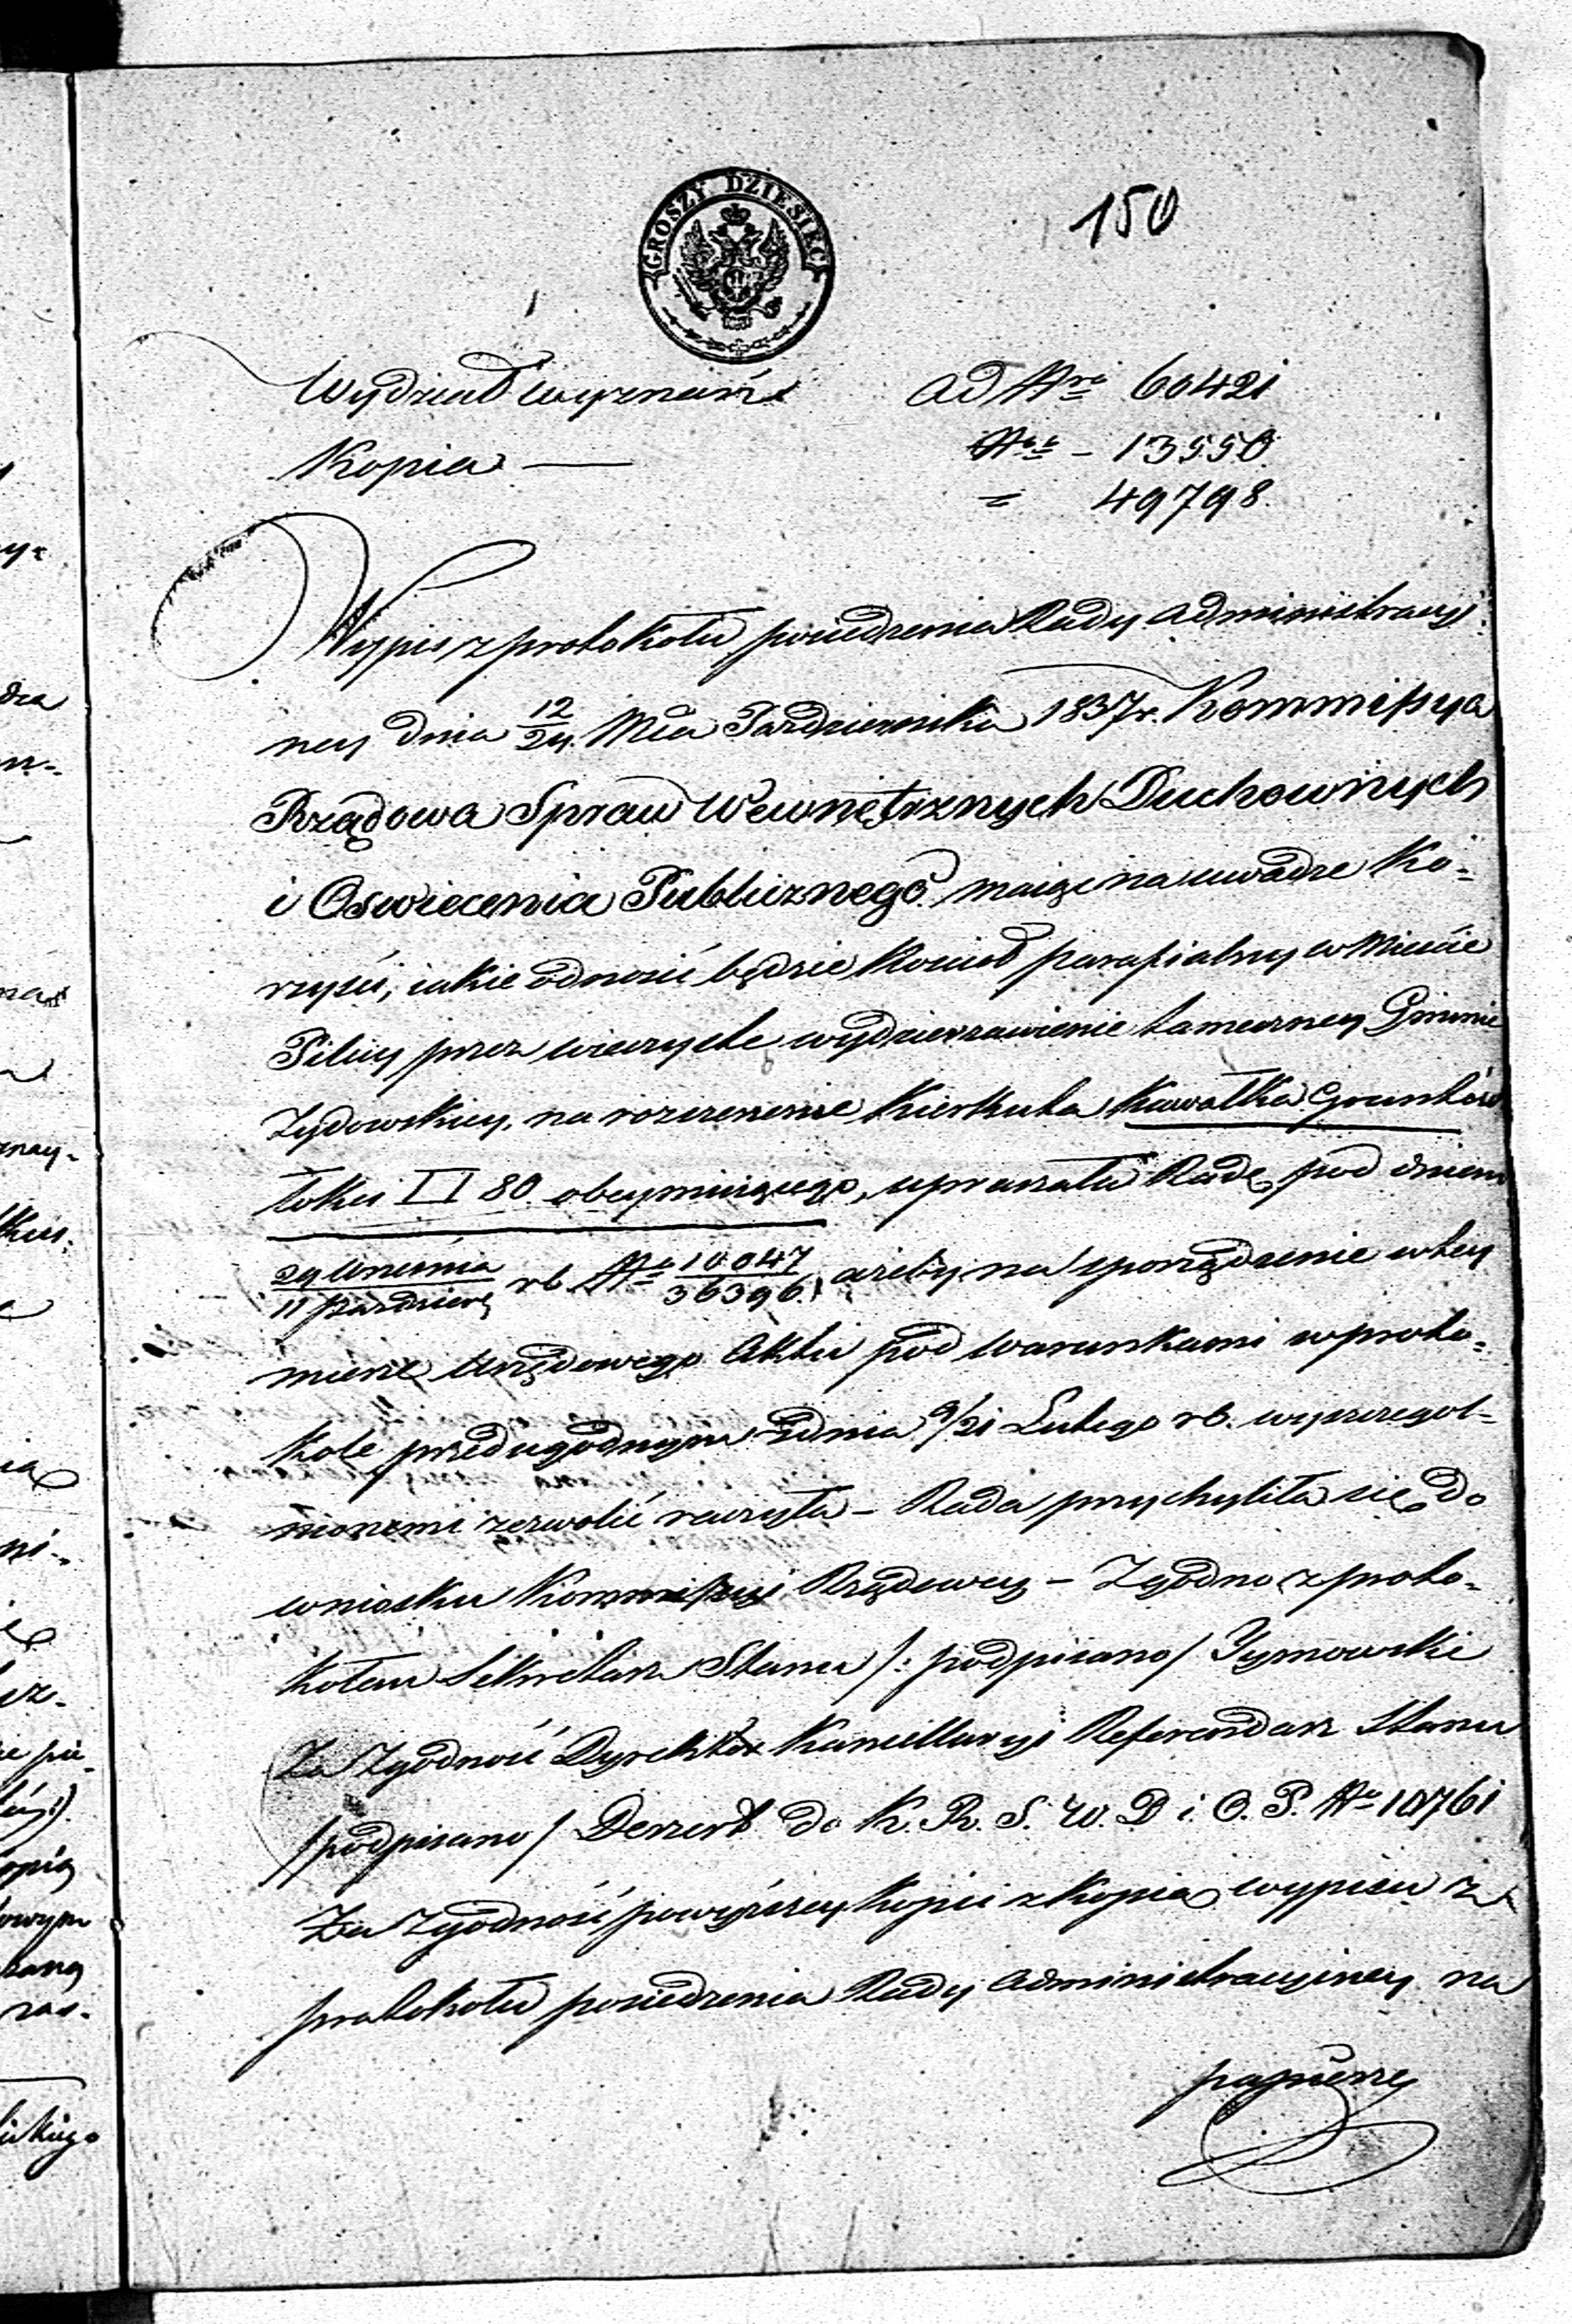 GROSZY DZIESIEC
150
Wydział wyznań
ad Nra 60421
Kopia —
Nro - 13550
" 49798.
Wypis z protokołu posiedzenia Rady Administracyj
ney dnia 12/24 Mca Października 1837 r. Kommissya
Rządowa Spraw Wewnętrznych Duchownych
i Oswiecenia Publicznego maiąc na uwadze Ko-
rzyści, iakie odnosić będzie Kościoł parafialny w Mieście
Pilicy przez wieczyste wydzierzawienie tameczney Gminie
Żydowskiey, na rozszerzenie Kierkuta Kawałka Gruntu
łokci □ 80. obeymuiącego, upraszała Radę pod dniem
29 Września / 11 Paździer rb. No 10047/36396. ażeby na sporządzenie w tey
mierze Urzędowego Aktu pod warunkami w proto-
kole przedugodnym z dnia 9/21 Lutego rb. wyszczegol-
nionemi zezwolić raczyła – Rada przychyliła się do
wniosku Kommissyi Rządowey – Zgodno z proto-
kołem Sekretarz Stanu /: podpisano / Tymowski
Za Zgodność Dyrektor Kancellaryi Referendarz Stanu
/ podpisano / Deszert do K. R. S. W. D i. O. P. No 10761
Za Zgodność powyższey Kopii z Kopią wypisu z
protokołu posiedzenia Rady Administracyiney na
papierze